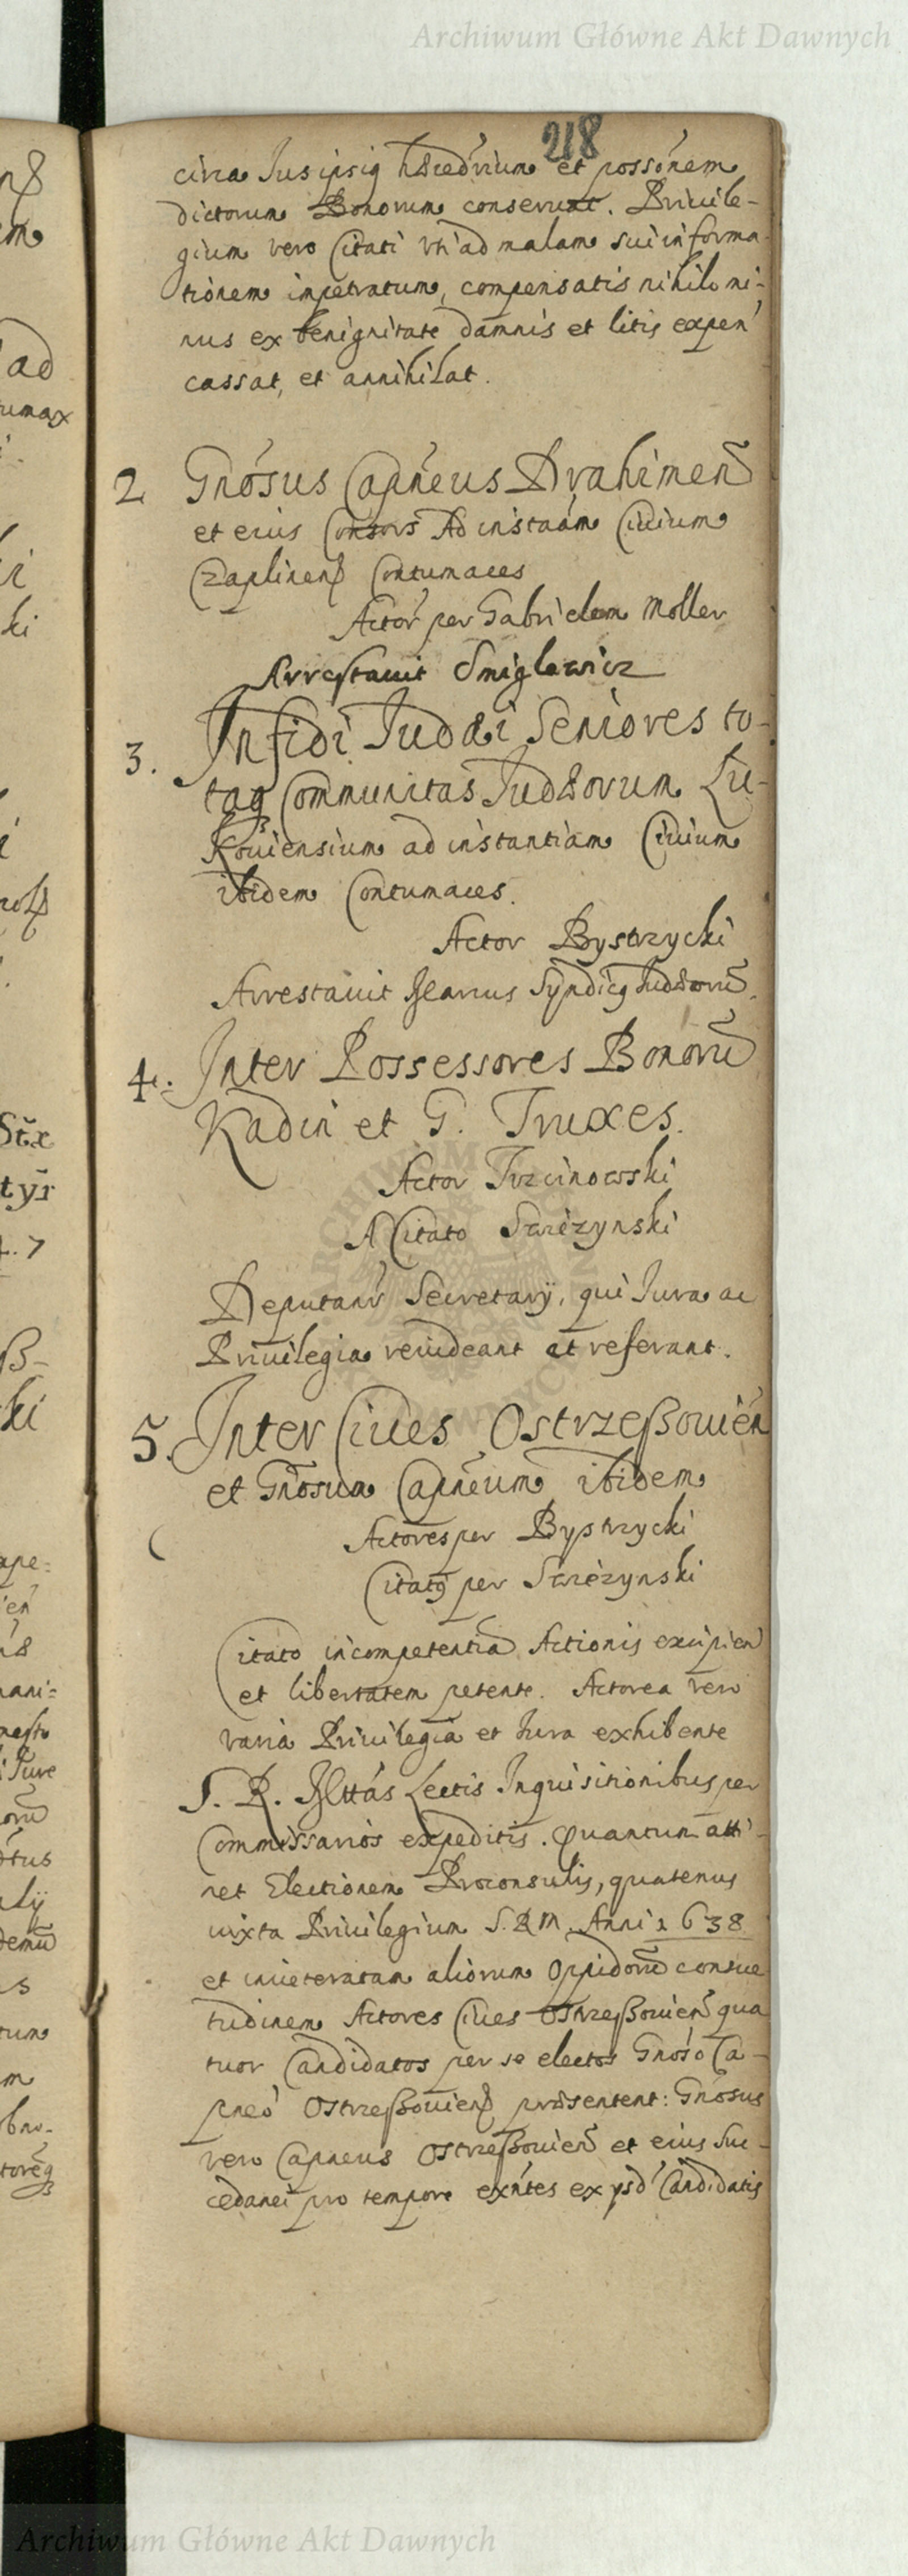 Archiwum Główne Akt Dawnych
218
circa Jus ipsiq hæredrium et possónem
dictorum Bonorum conseruat. Priuile-
gium vero Citati vti ad malam sui informa-
tionem inpetratum, compensatis nihilo mi-
nus ex benignitate damnis et litis expen
cassat, et annihilat.
2 Gnósus Capneus Drahimen
et eius Consors Ad instaám Ciuium
Czaplinen Contumaces
Actor per Gabrielem Moller
Arrestauit Smiglewicz
3. Infidi Judæi Seniores to-
taq Communitas Judæorum Lu-
kouiensium ad instantiam Ciuium
ibidem Contumaces.
Actor Bystrzycki
Arrestauit Syndicq Judæorū
4. Inter Possessores Bonorū
Kadin et G. Truxes.
Actor Trzcinowski
A Citato Swiezynski
Deputanr Secretarÿ, qui Jura ac
Priuilegia reuideant et referant.
5. Inter Ciues Ostrzeßouien
et Gnosum Capneum ibidem
Actores per Bystrzycki
Citatq per Swiezynski
Citato incompetentia Actionis excipien
et libertatem petente. Actorea vero
varia Priuilegia et Jura exhibente
S. R. Mttas Lectis Inquisitionibus per
Commissarios expeditis. Quantum atti-
net Electionem Proconsulis, quatenus
iuxta Priuilegium S. R M. Anni 1638
et inueteratam aliorum Oppidorū consue
tudinem Actores Ciues Ostrzeßouien qua
tuor Candidatos per se electos Gnoso Ca-
pneo Ostrzeßouien præsentent: Gnosus
vero Capneus Ostrzeßouien et eius Suc-
cedanei pro tempore exntes ex ysd Candidatis
Archiwum Główne Akt Dawnych